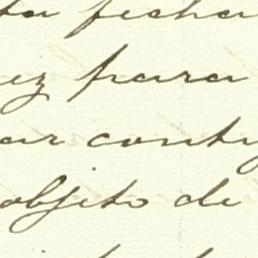 ta fecha
ez para
ar conti
objeto de